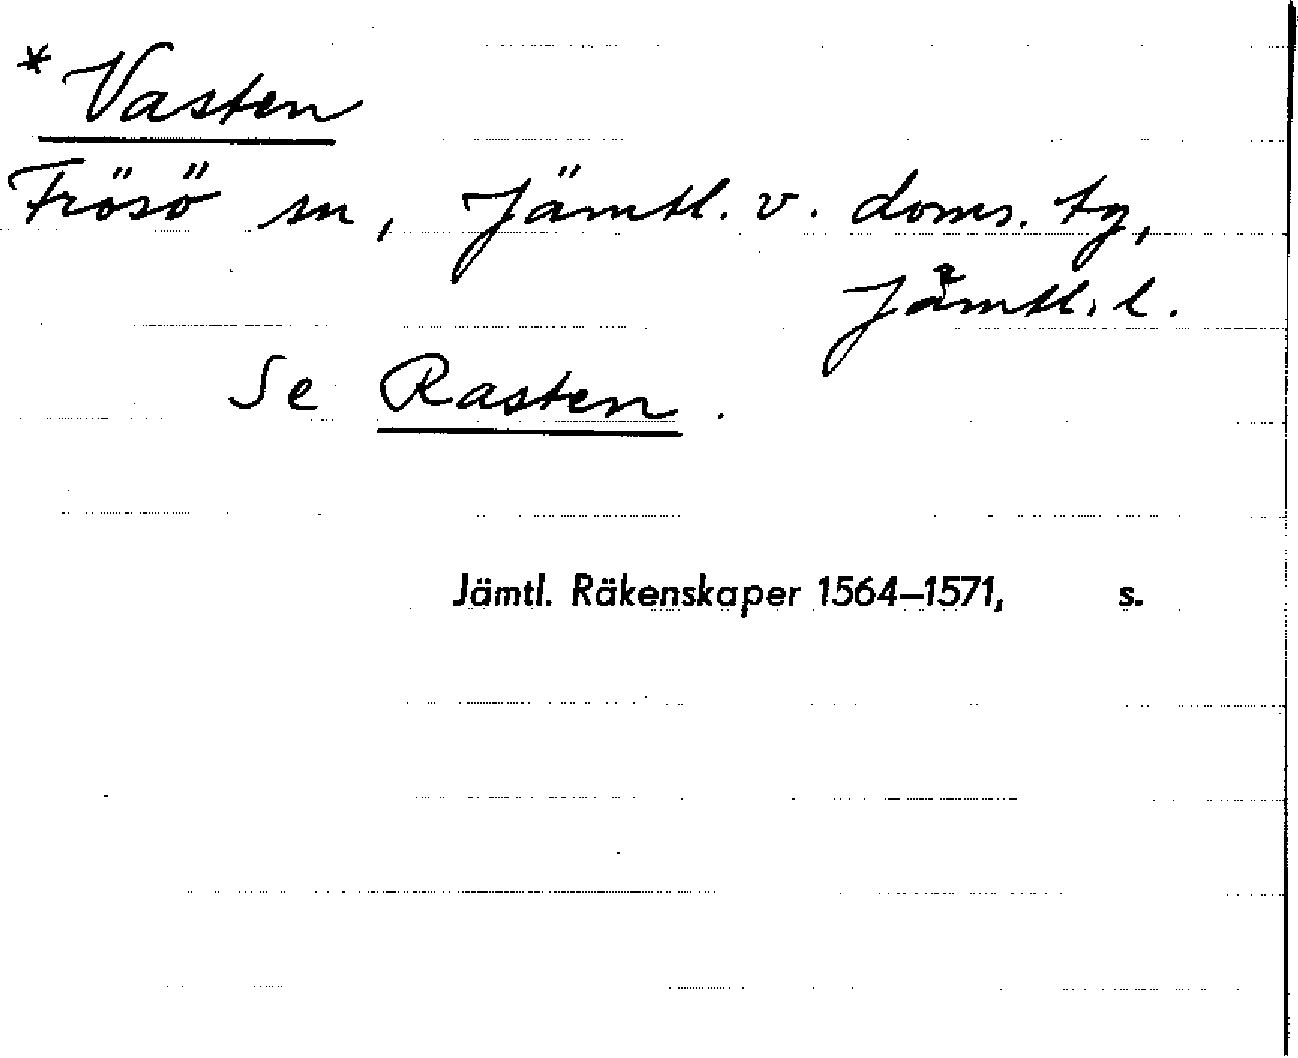 * Vasten
Frösö sn, Jämtl. v. doms. tg,
Jämtl. l.
Se Rasten.
Jämtl. Räkenskaper 1564–1571, s.